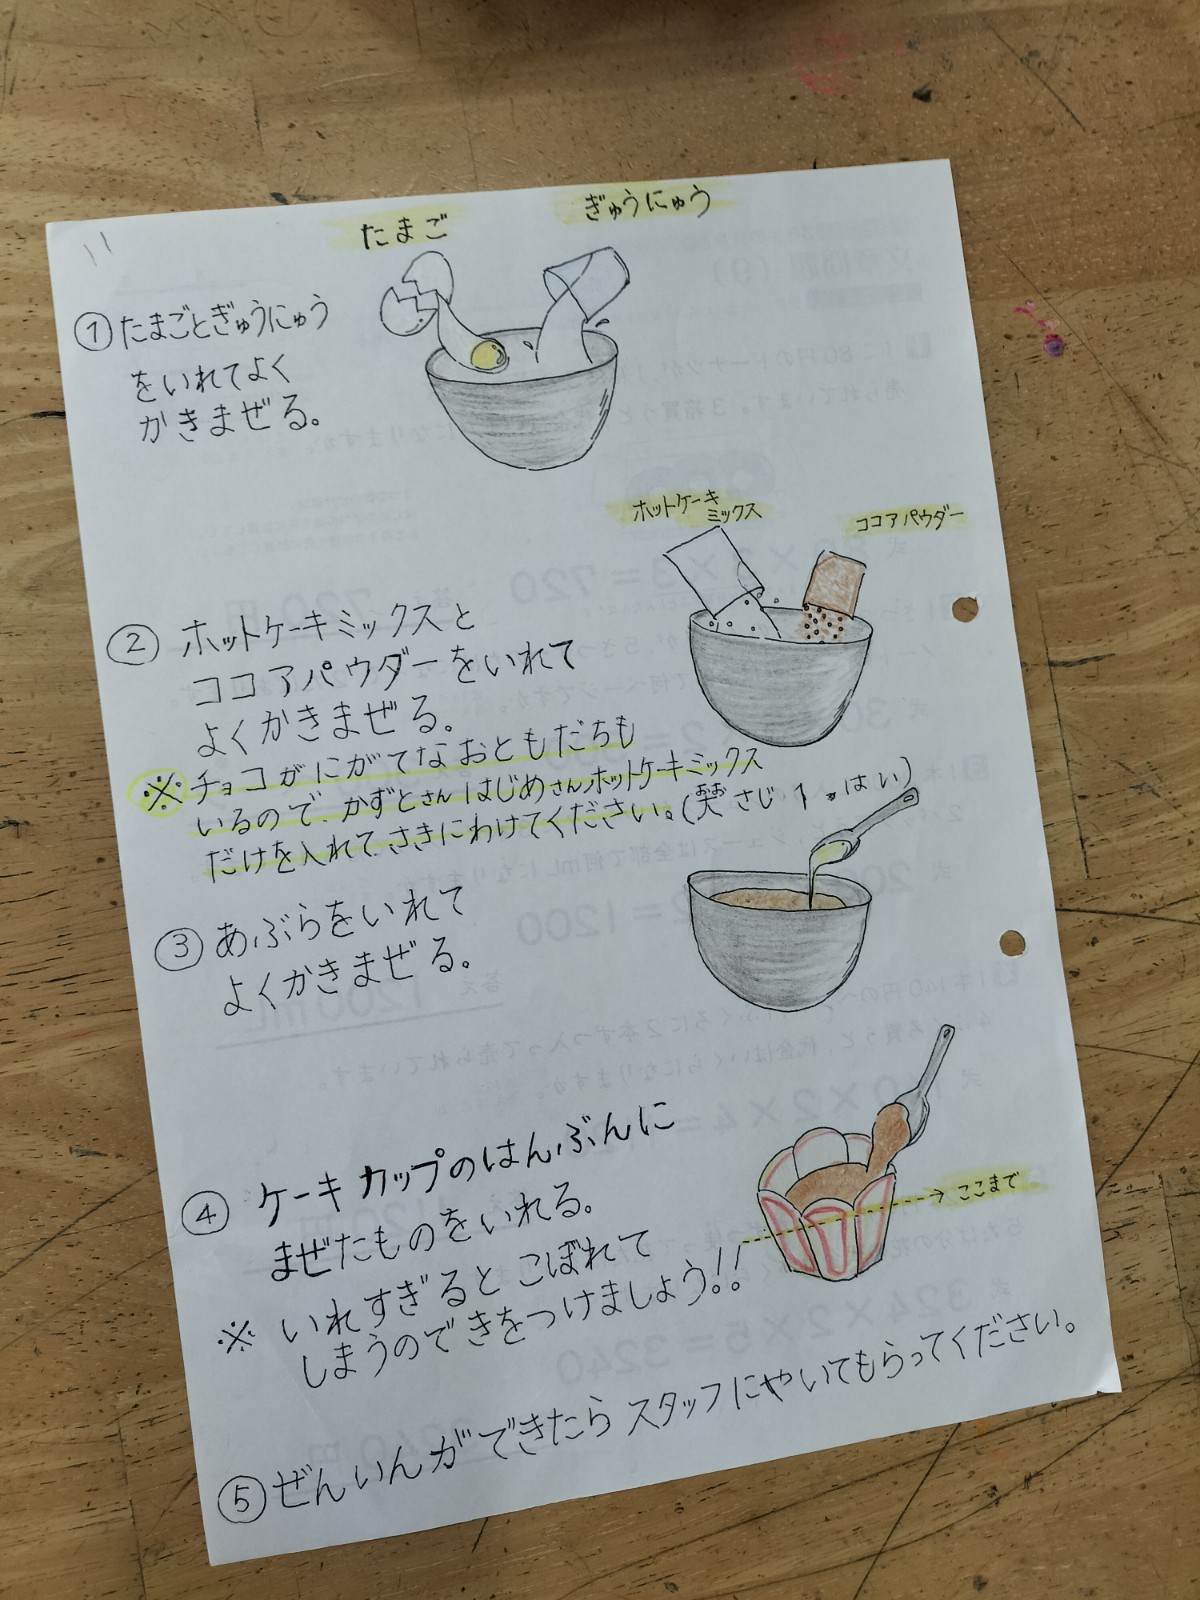 たまご
ぎゅうにゅう
① たまごとぎゅうにゅう
をいれてよく
かきまぜる。
ホットケーキ
ミックス
ココアパウダー
② ホットケーキミックスと
ココアパウダーをいれて
よくかきまぜる。
※チョコがにがてなおともだちも
いるので、かずとさんはじめさんホットケーキミックス
だけを入れて、さきにわけてください。(さじ1ぱい)
③ あぶらをいれて
よくかきまぜる。
④ ケーキカップのはんぶんに
まぜたものをいれる。
ここまで
※ いれすぎると こぼれて
しまうのできをつけましょう!!
⑤ ぜんいんができたら スタッフにやいてもらってください。